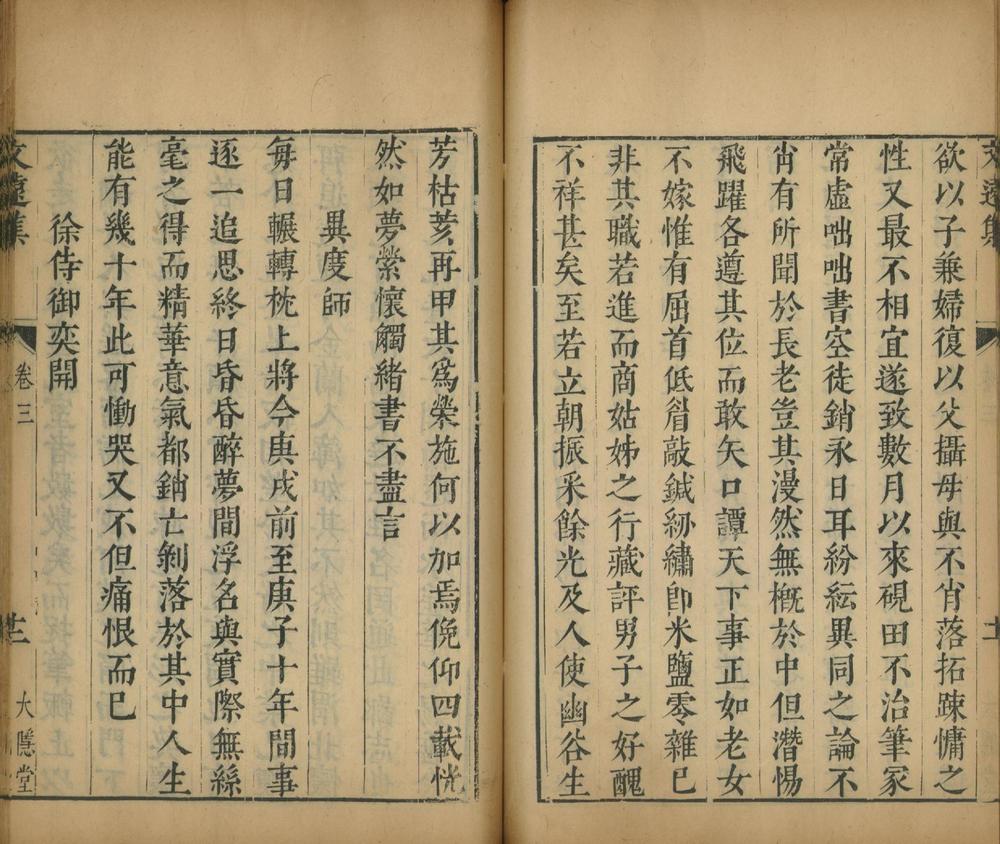 欲以子兼婦復以父攝母與不肖落拓踈慵之
性又最不相宜遂致數月以來硯田不治筆冢
常虛咄咄書空徒銷永日耳紛紜異同之論不
肖有所聞於長老豈其漫然無概於中但潛惕
飛躍各遵其位而敢矢口譚天下事正如老女
不嫁惟有屈首低眉敲鍼紉繡卽米鹽零雜已
非其職若進而商姑姊之行藏評男子之好醜
不祥甚矣至若立朝振采餘光及人使幽谷生
芳枯荄再甲其爲榮施何以加焉俛仰四載恍
然如夢縈懷觸緒書不盡言
異度師
每日輾轉枕上將今庚戌前至庚子十年間事
逐一追思終日昏昏醉夢間浮名與實際無絲
毫之得而精華意氣都銷亡剝落於其中人生
能有幾十年此可慟哭又不但痛恨而已
徐侍御奕開
文遠集
卷三
大隱堂